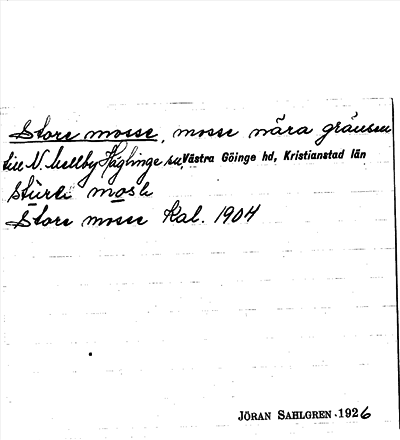 Store mosse, mosse nära gränsen
till N. Mellby Häglinge sn, Västra Göinge hd, Kristianstad län
stúrė mosė
Store mosse Kal. 1904
JÖRAN SAHLGREN 1926